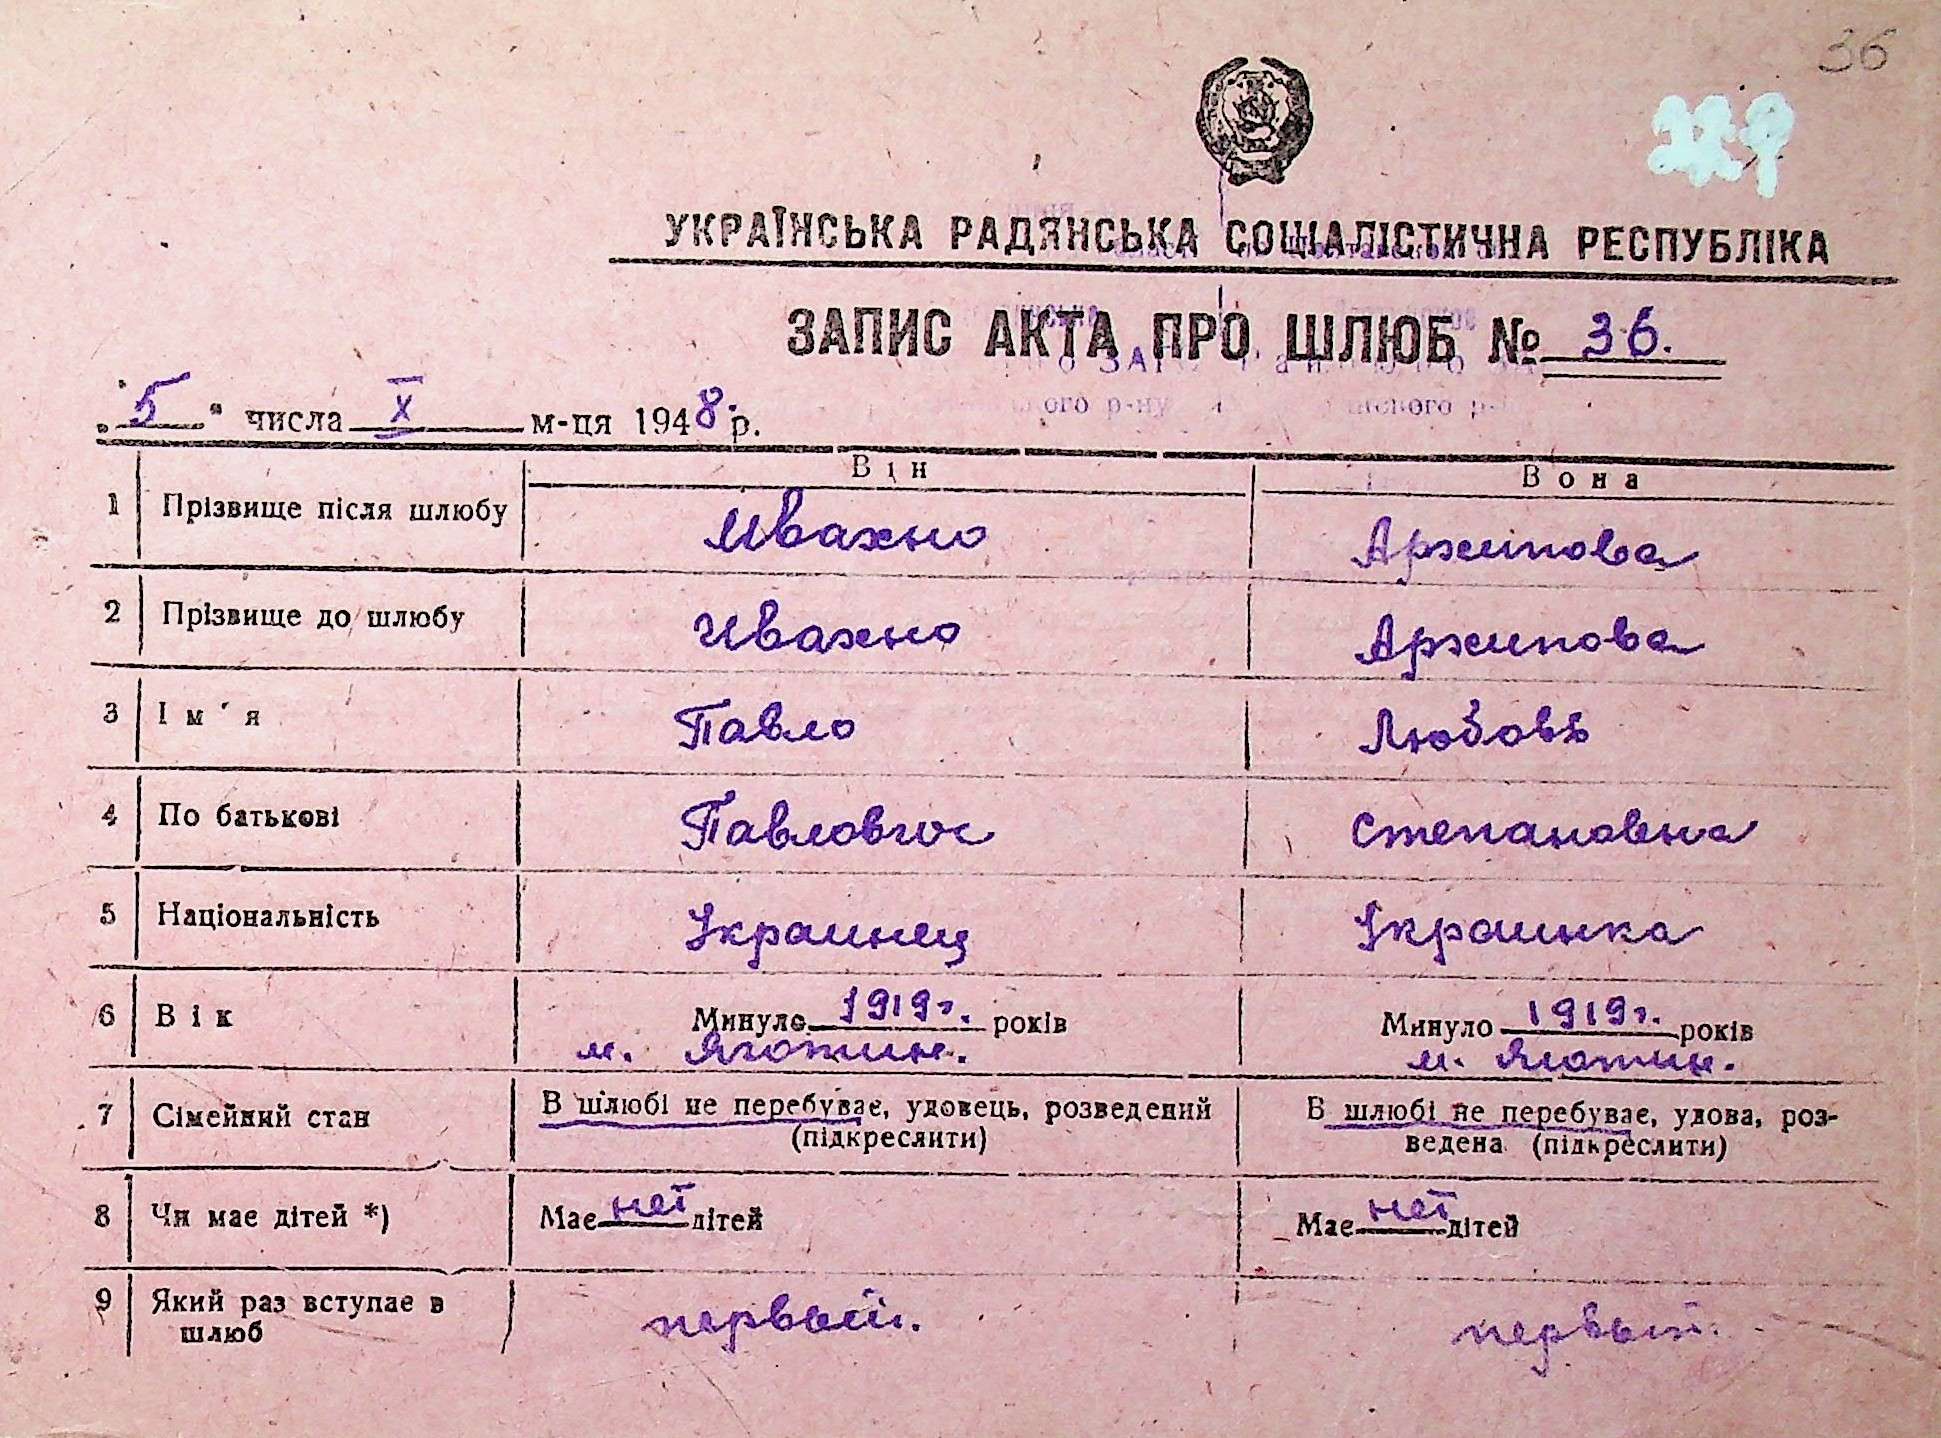 36
УКРАЇНСЬКА РАДЯНСЬКА СОЦІАЛІСТИЧНА РЕСПУБЛІКА
ЗАПИС АКТА ПРО ШЛЮБ № 36.
„5" числа X м-ця 1948 р.
Він Вона
1 Прізвище після шлюбу Ивахно Архипова
2 Прізвище до шлюбу Ивахно Архипова
3 Ім'я Павло Любовь
4 По батькові Павлович Степановна
5 Національність Украинец Украинка
6 Вік Минуло 1919г. років Минуло 1919г. років
м. Яготин. м. Яготин.
7 Сімейний стан В шлюбі не перебуває, удовець, розведений В шлюбі не перебуває, удова, роз-
(підкреслити) ведена (підкреслити)
8 Чи має дітей *) Має нет дітей Має нет дітей
9 Який раз вступає в первый. первый.
шлюб